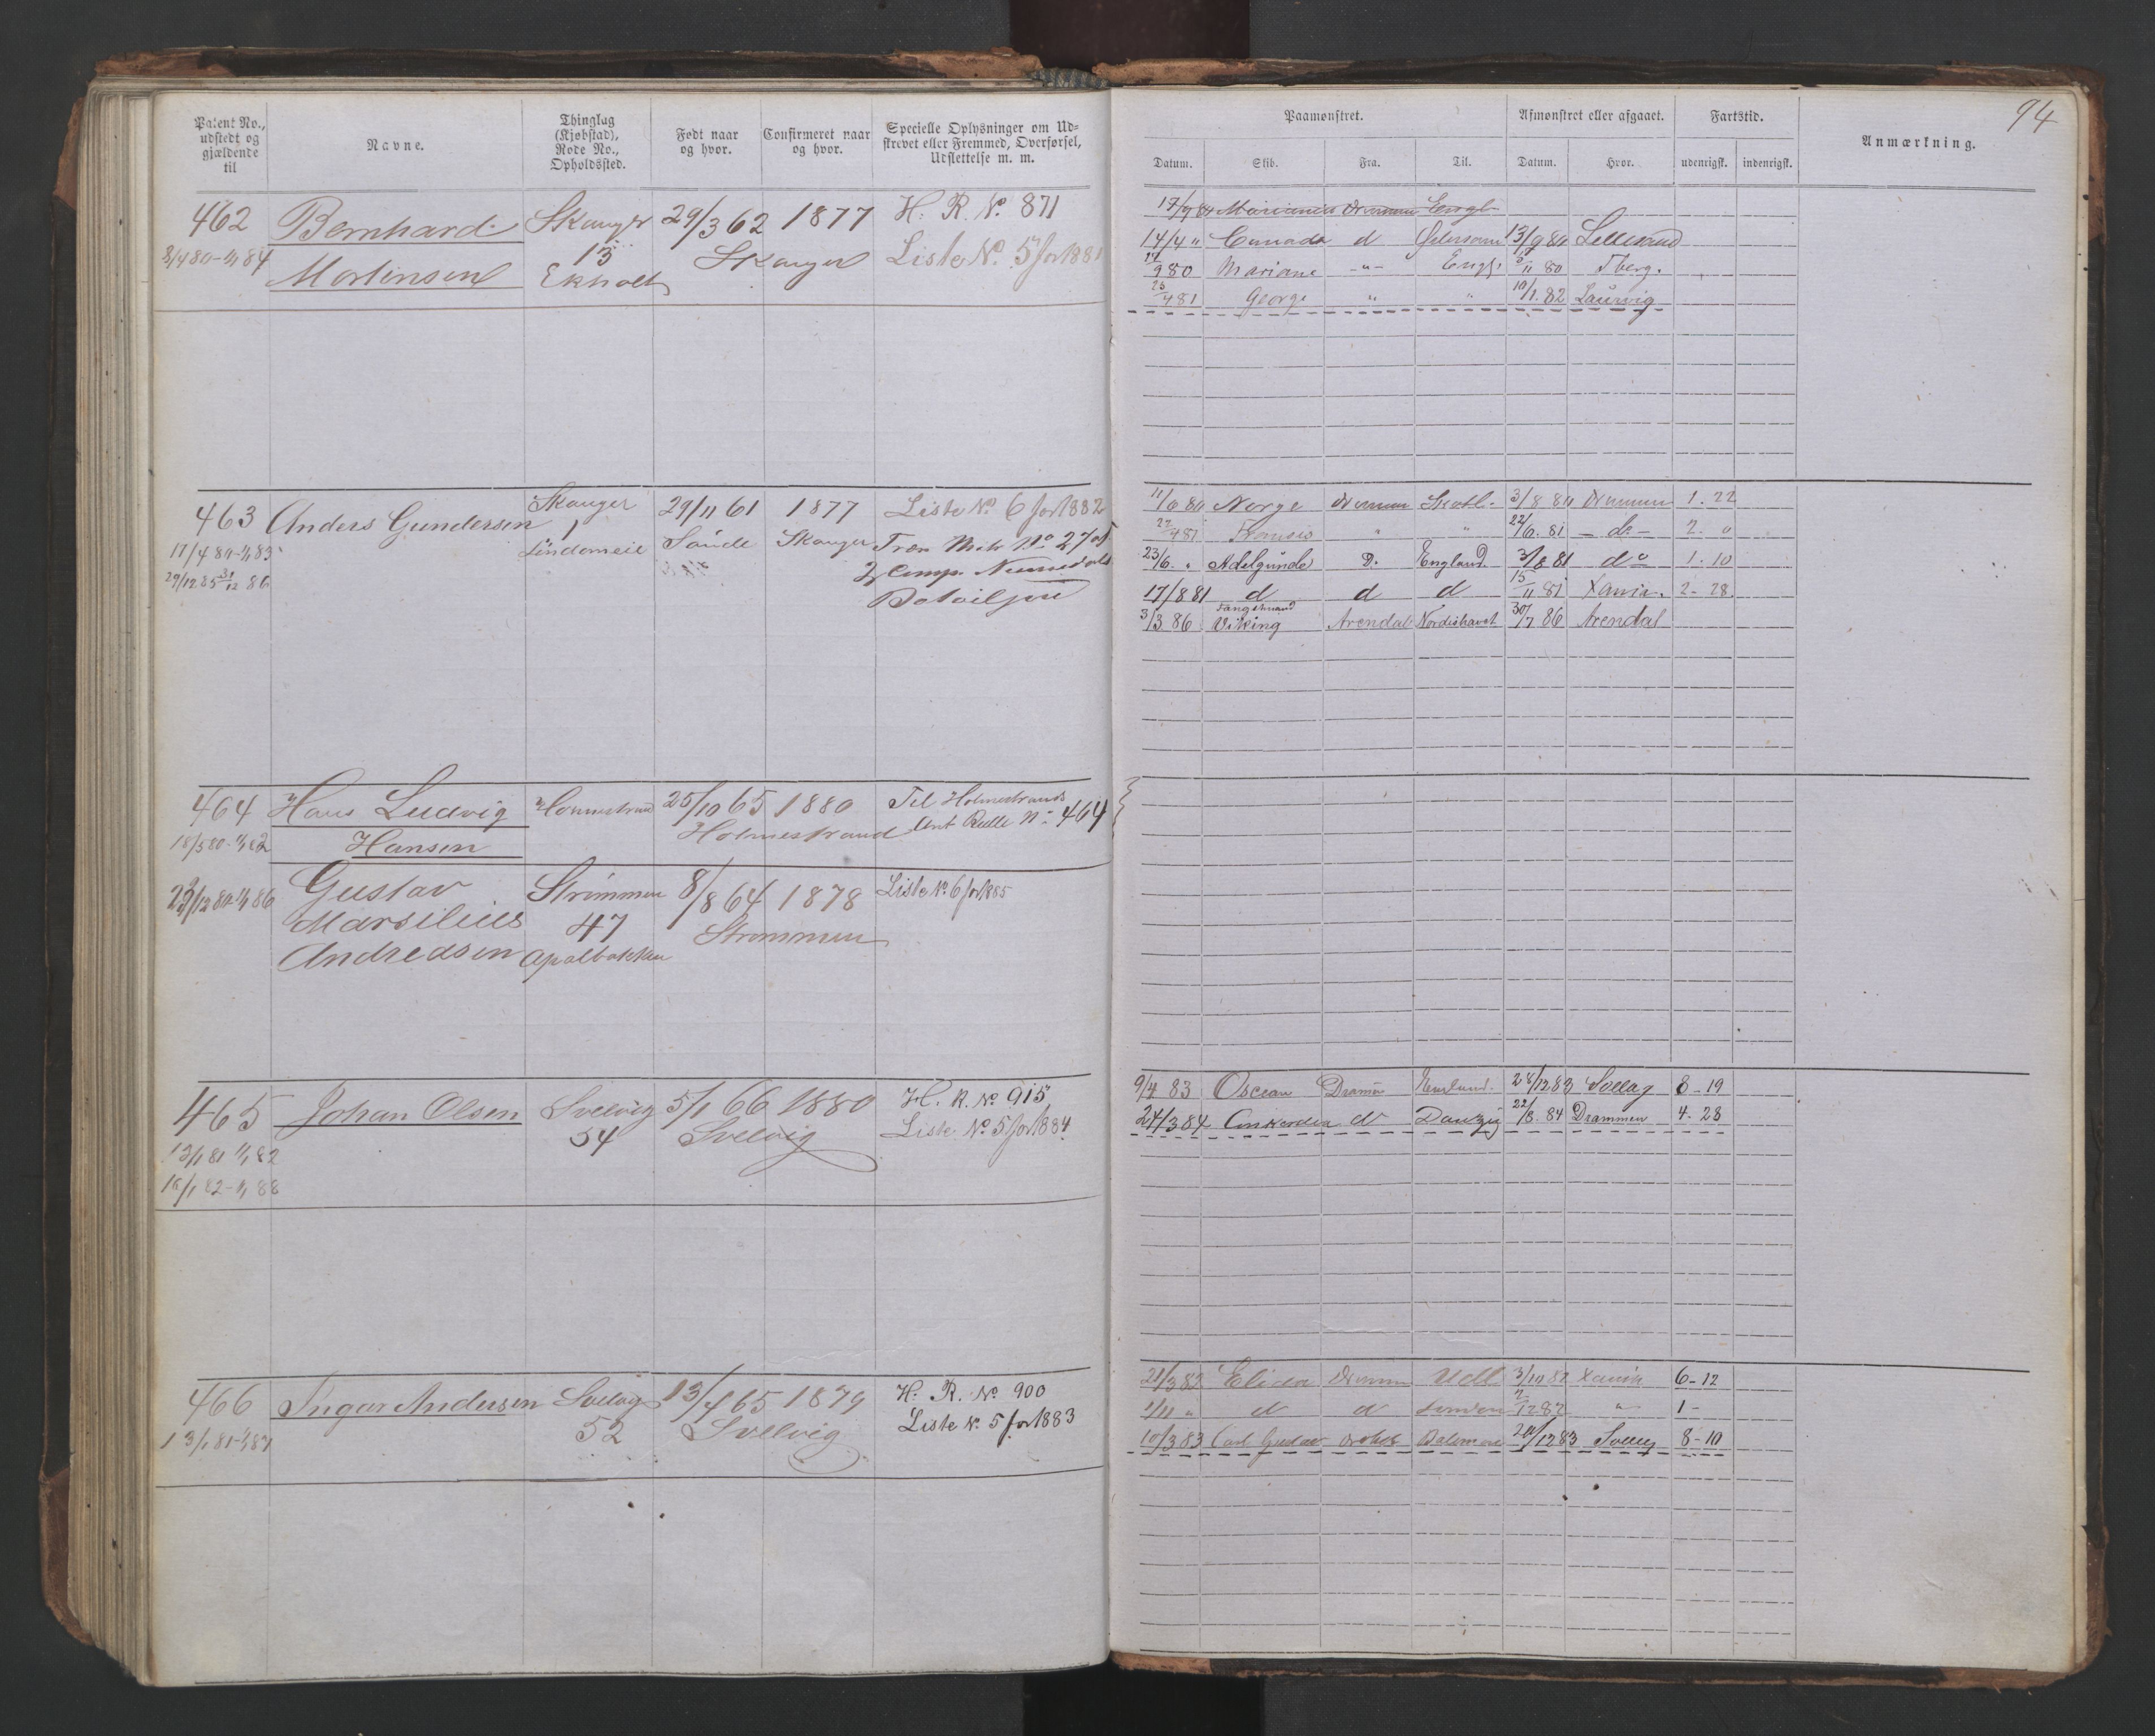 94
Patent No., udstedt og gjældende til
Navne.
Thinglag (Kjøbstad), Rode No., Opholdssted.
Født naar og hvor.
Confirmeret naar og hvor.
Specielle Oplysninger om Udskrevet eller Fremmed, Overførsel, Udslettelse m. m.
Paamønstret.
Afmønstret eller afgaaet.
Fartstid.
Anmærkning.
Datum. Skib. Fra. Til. Datum. Hvor. udenrigsk. indenrigsk.
462 Bernhard Skouger 29/3 62 1877 H. R. No. 871
8/4 80 - 1/1 84 Mortinsen 13 Skouger Liste No. 5 for 1881
Ekholt
Engl.
14/4 " Canada d 13/9 80 Lillesand
980 Mariane - " - Engl. 80 Tberg.
481 George " " 10/1. 82 Laurvig
463 Anders Gundersen Skouger 29/11 61 1877 Liste No. 6 for 1882
17/4 80 - 1/1 83 1 Sande Skouger No. 27 af
29/12 85 31/12 86 Comp. Numedals
Batailjon
11/6 80 Norge Drammen Skotl. 3/8 80 Drammen 1. 22
" " 22/6. 81 - do - 2. "
23/6. " Adelgunde D. England 3/8 81 do 1. 10
17/8 81 d d d 15/11 81 Xania. 2 - 28
3/3 86 Viking Arendal Nordishavet 30/7 86 Arendal
464 Hans Ludvig Holmestrand 25/10 65 1880 Til Holmestrands
18/5 80 - 1/1 82 Hansen Holmestrand Ant Rulle No. 464
23/12 80 - 1/1 86 Gustav Strømmen 8/8 64 1878 Liste No. 6 for 1885
Marsilius 47 Strømmen
Andredsen Apalbakken
465 Johan Olsen Svelvig 5/1 66 1880 H. R. No 915
13/1 81 1/1 82 54 Svelvig Liste No. 5 for 1884
1/1 88
9/4 83 Oscean Dramn England. 28/12 83 Svelvig 8 - 19
24/3 84 Conkordia d Danzig 22/8. 84 Drammen 4. 28
466 Ingar Andersen Svelvig 13/4 65 1879 H. R. No 900
13/1 81 - 1/1 87 52 Svelvig Liste No. 5 for 1883
21/3 82 Elida Drammen Udl 3/10 82 Xania 6 - 12
1/11 " d d London 2/12 82 " 1 -
10/3 83 Carl Gustav 20/12 83 Svelvig 8 - 10